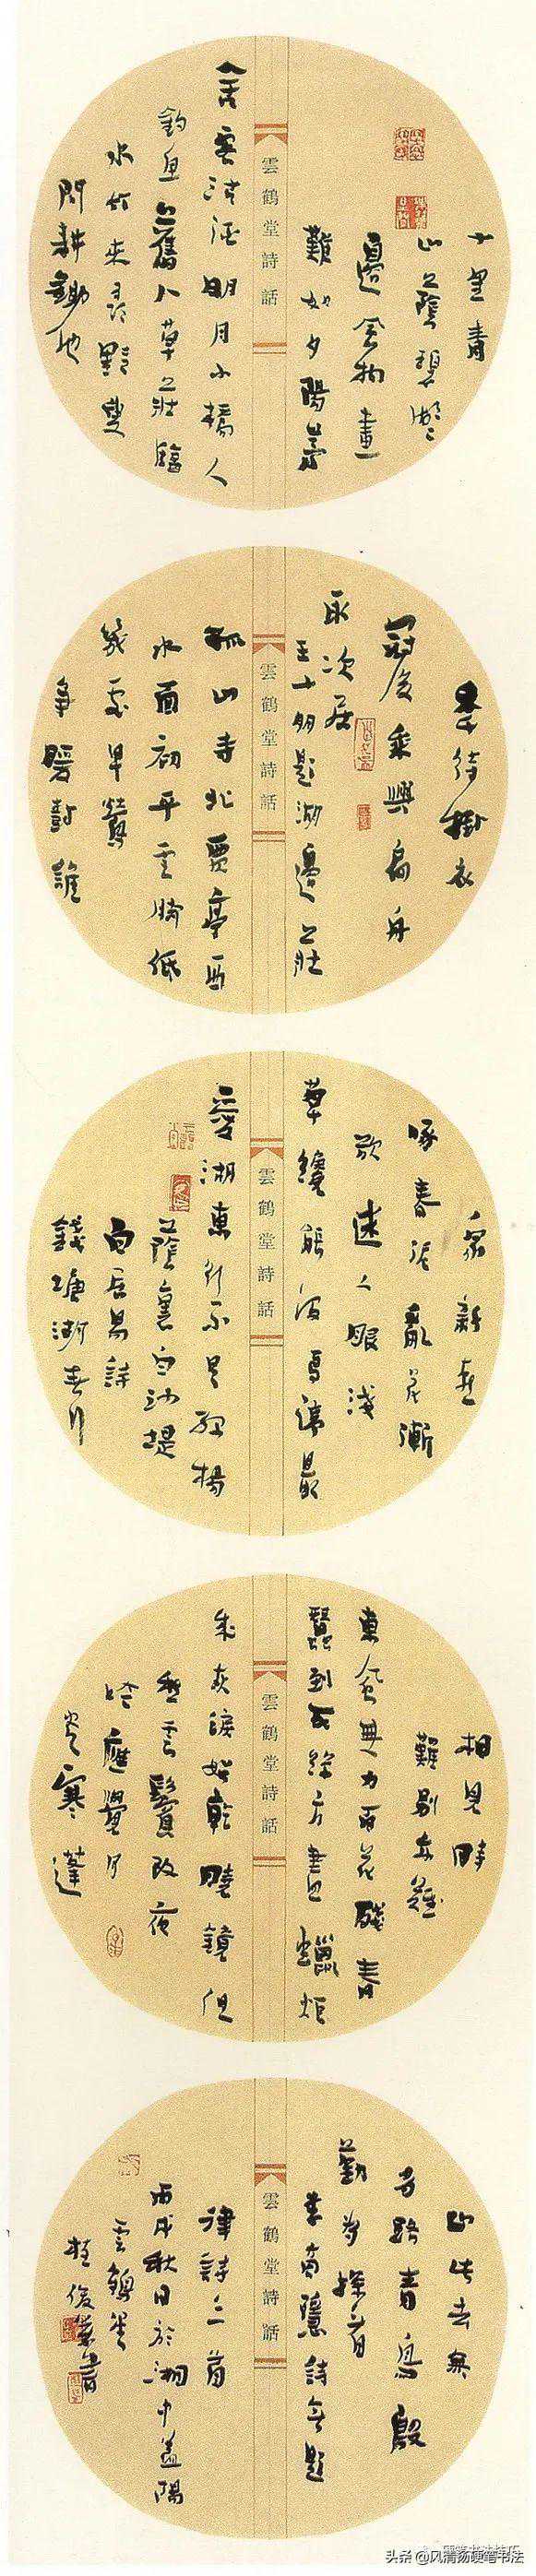 十里青
山蔭碧湖〻
邊風物畫
難如夕陽茅
雲鶴堂詩話
舍客沽酒明月小橋人
釣魚舊卜草莊臨
水竹來尋野叟
問耕鋤他
年待掛衣
冠後乘興扁舟
取次居
王十朋題湖邊莊
雲鶴堂詩話
孤山寺北賈亭西
水面初平雲腳低
幾處早鶯
爭暖樹誰
家新燕
啄春泥亂花漸
欲迷人眼淺
草纔能沒馬蹄最
雲鶴堂詩話
愛湖東行不足綠楊
蔭裏白沙堤
白居易詩
錢塘湖春行
相見時
難別亦難
東風無力百花殘春
蠶到死絲方盡蠟炬
雲鶴堂詩話
成灰淚始乾曉鏡但
愁雲鬢改夜
吟應覺月
光寒蓬
山此去無
多路青鳥殷
勤為探看
李商隱詩無題
雲鶴堂詩話
律詩三首
丙戌秋日於湖中益陽
雲鶴堂
桂俊榮書
头条 @风清扬硬笔书法